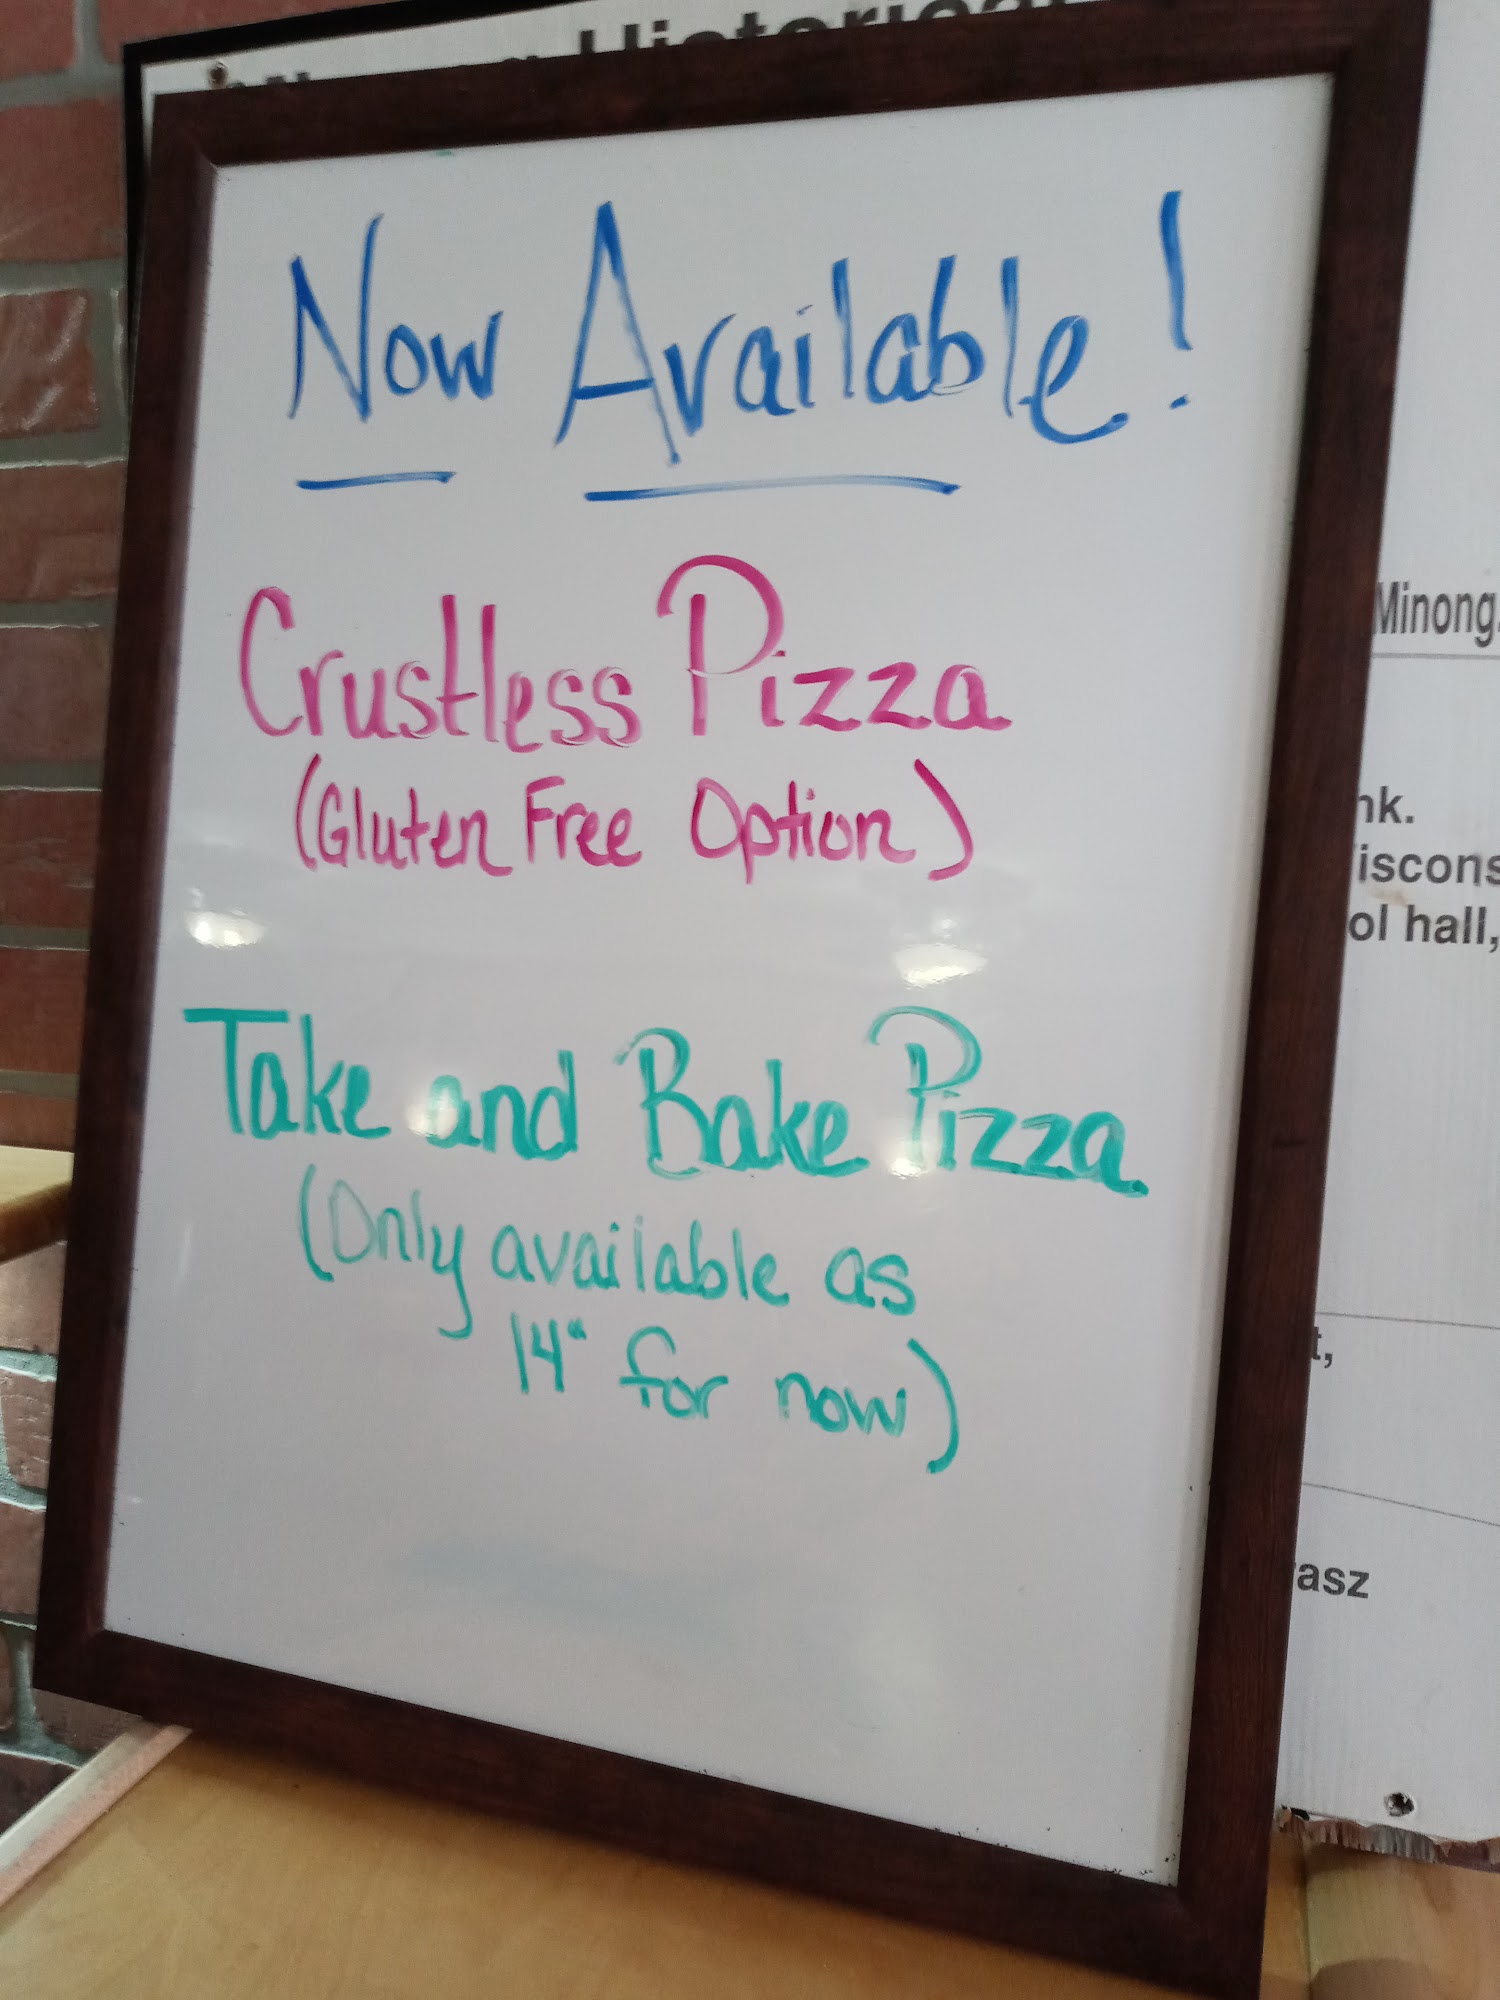 Historical
Now Available!
Crustless Pizza
(Gluten Free Option)
Take and Bake Pizza
(Only available as
14" for now)
Minong.
nk.
iscons
ol hall,
t,
asz